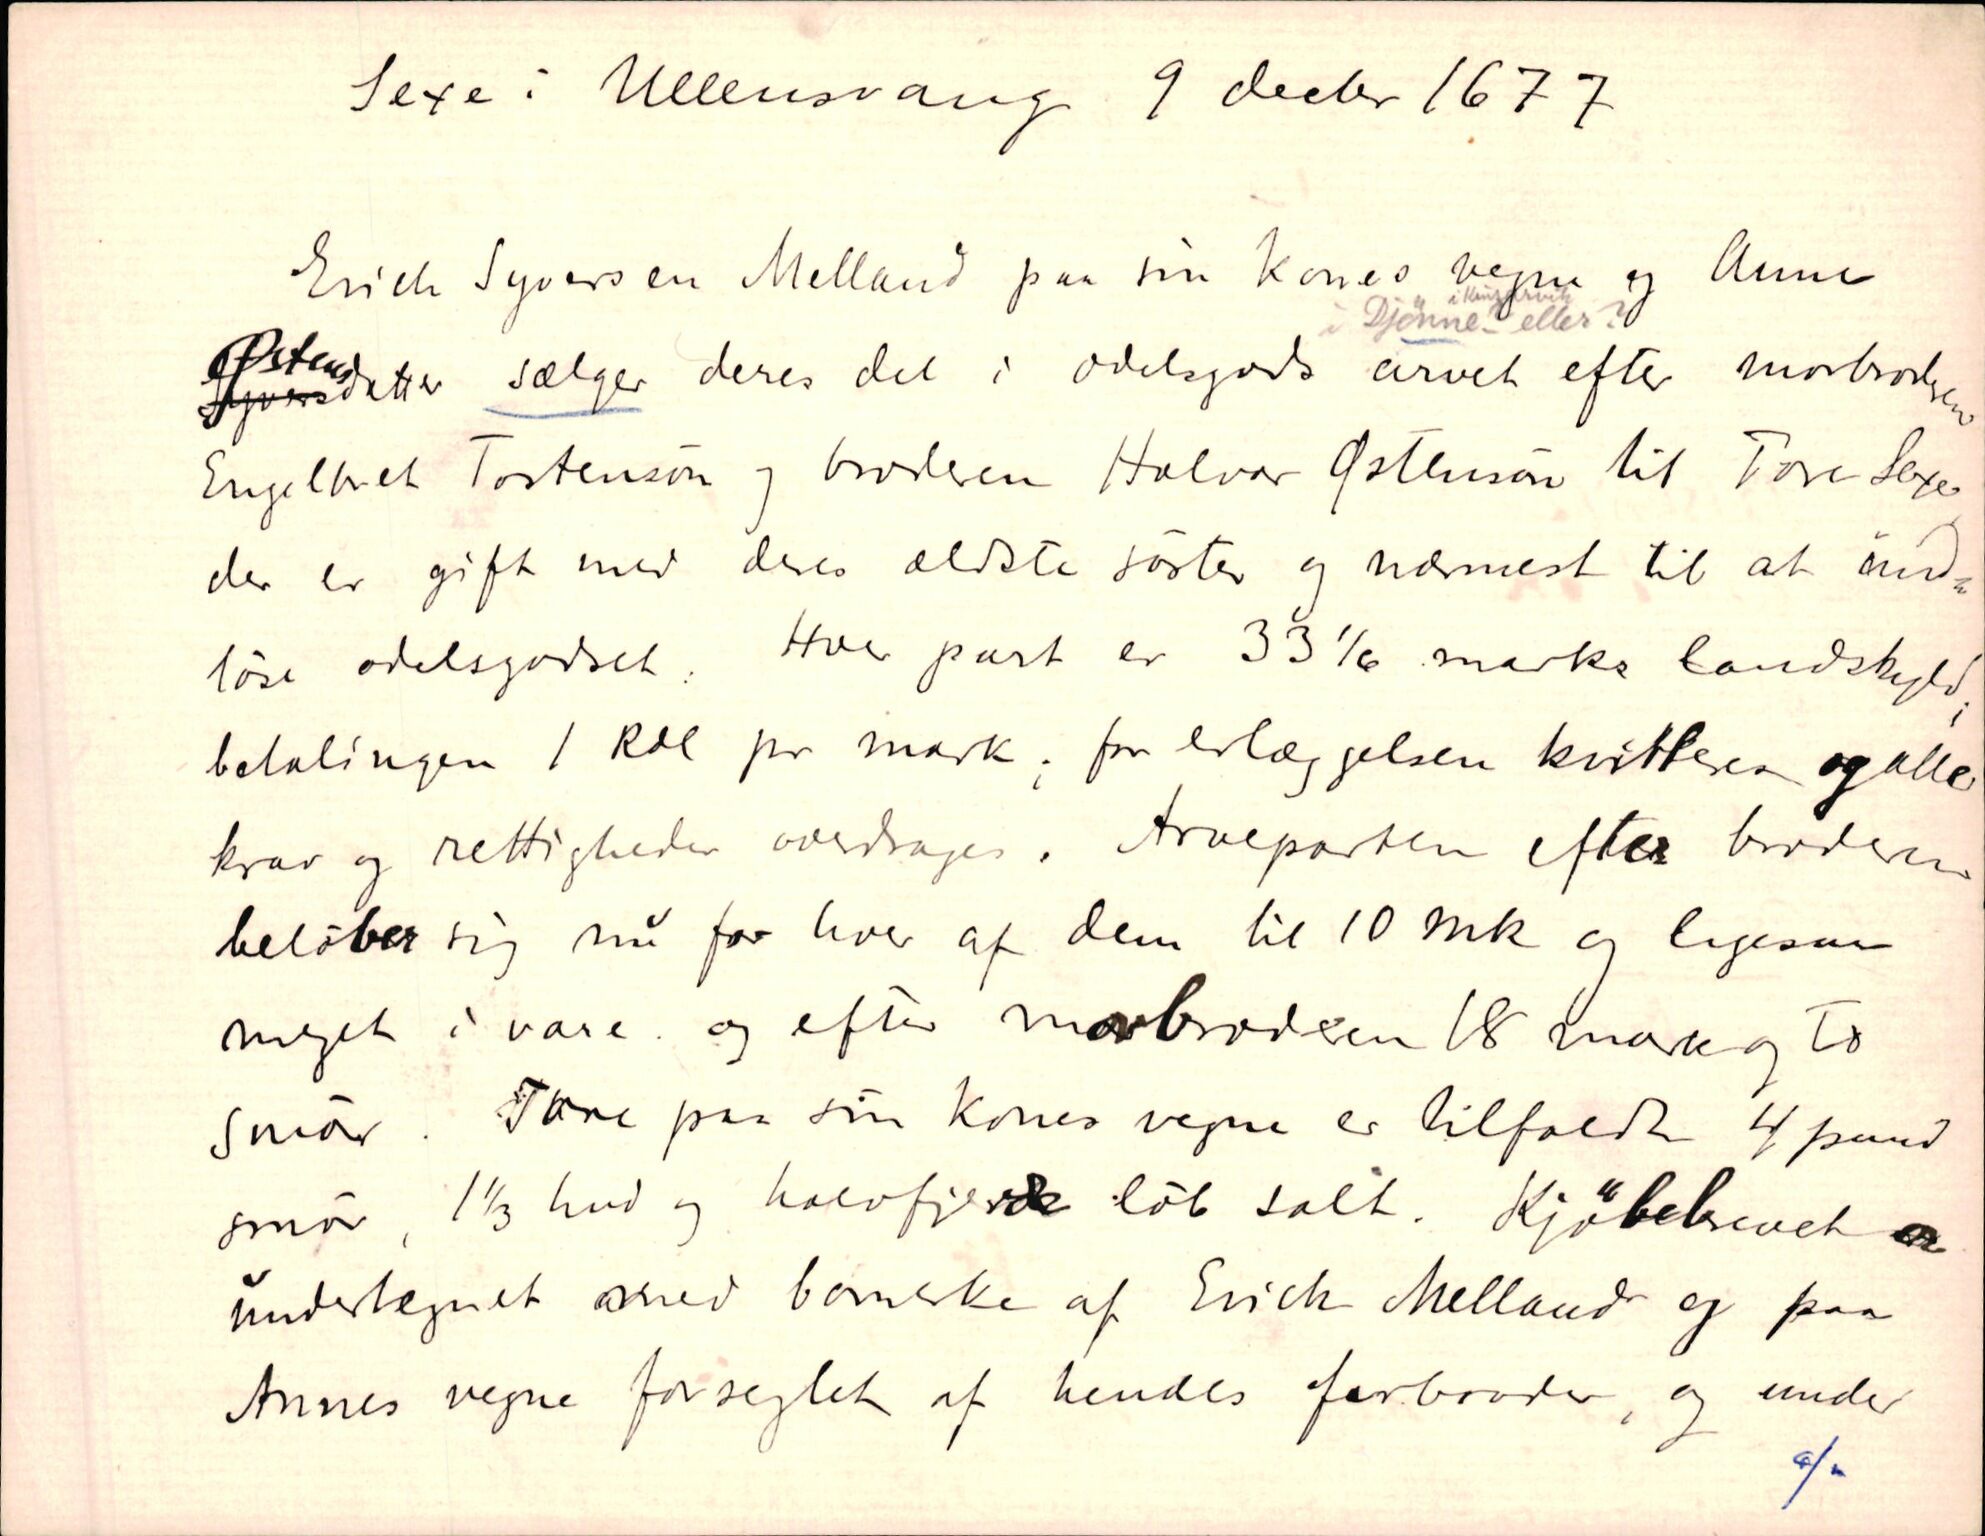 Sexe i Ullensvang 9 decbr 1677
Erich Syversen Melland paa sin kones vegne og Anne
i Djönne i Kinzarvik eller?
Østens
Syversdatter sælger deres del i odelsgods arvet efter morbroderen
Engelbret Torstensön og broderen Halvor Østensön til Tore Sexe
der er gift med deres ældste söster og nærmest til at ind-
löse odelsgodset. Hver part er 33 1/6 marks landskyld;
betalingen 1 Rdl pr mark; for erlæggelsen kvitteres og alle
krav og rettigheder overdrages. Arveparten efter broderen
belöber sig nŭ for hver af dem til 10 mk og ligesaa
meget i vare og efter morbroderen 18 mark og to
smör. Tore paa sin kones vegne er tilfaldt 4 pund
smör, 1 1/3 hud og halvfjerde löb salt. Kjöbebrevet er
ŭndertegnet med bomerke af Erich Melland og paa
Annes vegne forseglet af hendes farbroder, og under